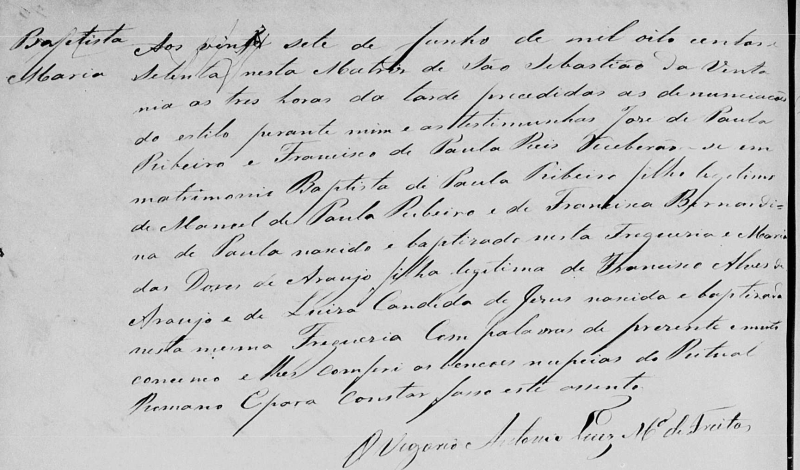 Baptista
Maria
Aos vinte sete de Junho de mil oito centos e
Setenta nesta Matriz de São Sebastião da Venta
nia as tres horas da tarde precedidas as denunciações
do estilo perante mim e as testimunhas Jose de Paula
Ribeiro e Francisco de Paula Reis Receberão-se em
matrimonio Baptista de Paula Ribeiro filho legitimo
de Manoel de Paula Ribeiro e de Francisca Bernardi=
na de Paula nascido e baptizado nesta Fregueria e Maria
das Dores de Araujo filha legitima de Francisco Alves de
Araujo e de Luiza Candida de Jezus nascida e baptizada
nesta mesma Fregueria Com palavras de prezente e mutu
concenço e lhes compri as bencoes nupcias do Ritual
Romano E para constar fasso este assento
O Vigario Antonio Luiz Mª de Freitas